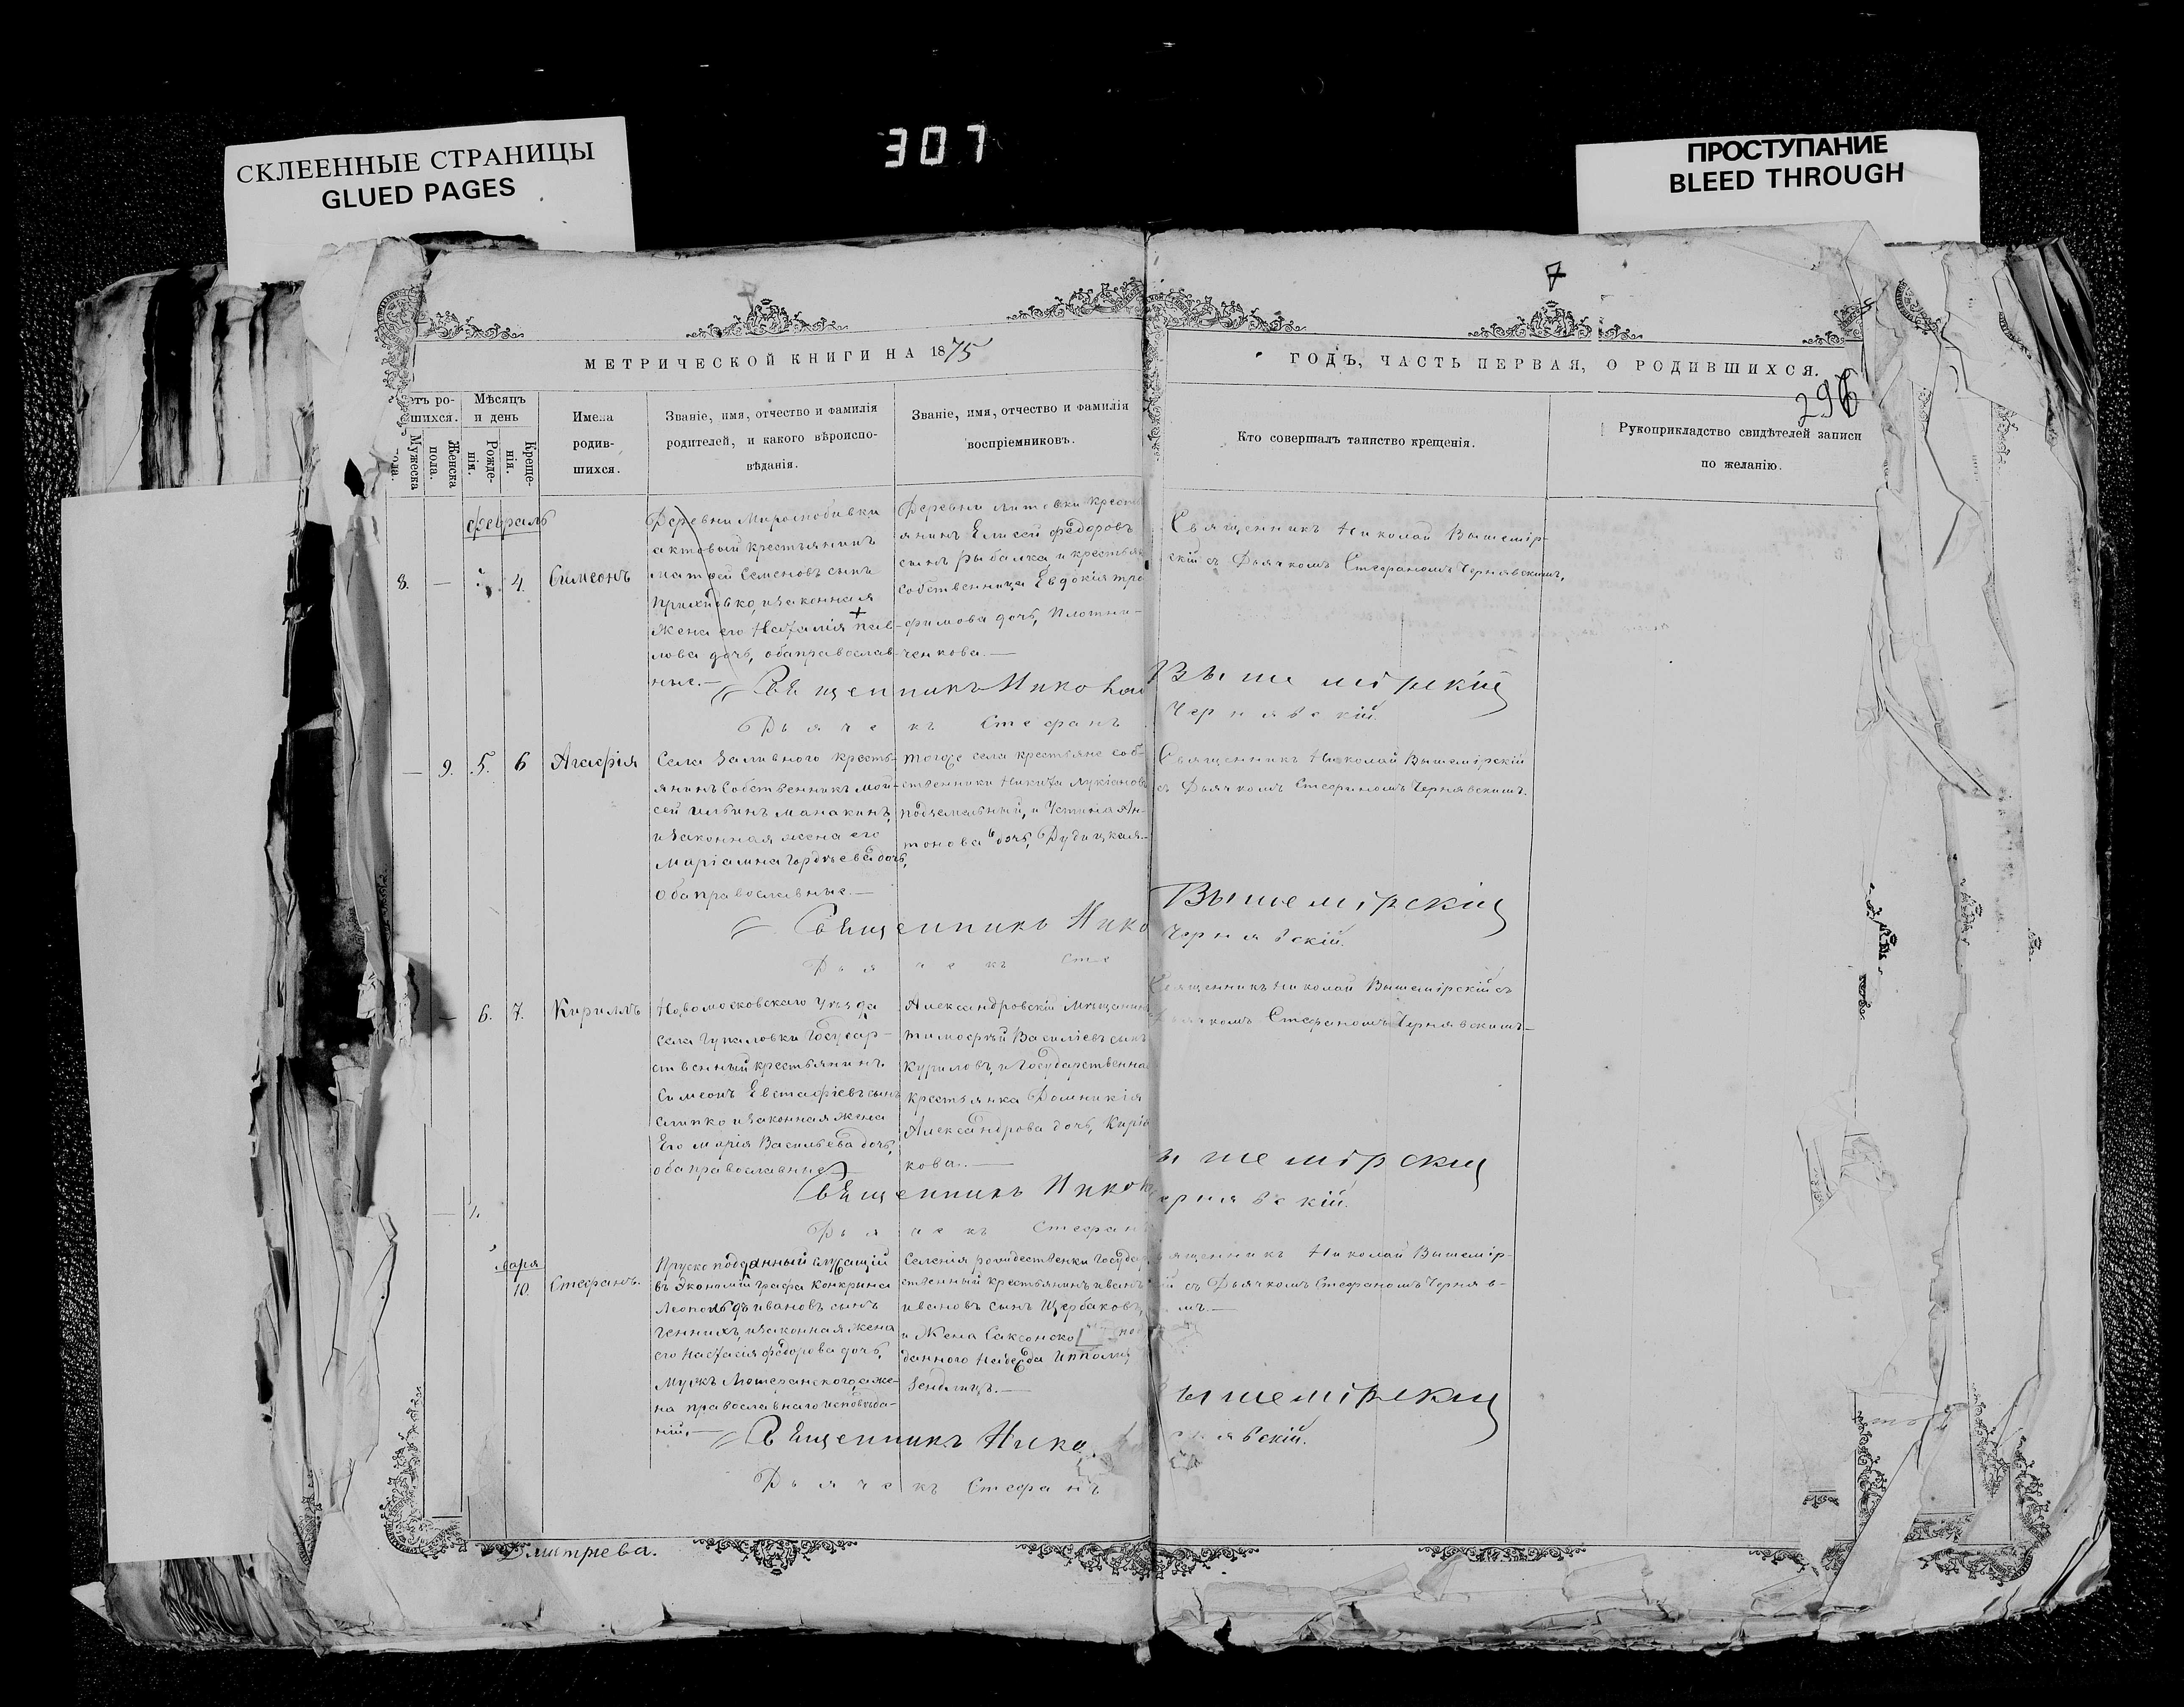 307
СКЛЕЕННЫЕ СТРАНИЦЫ
GLUED PAGES
ПРОСТУПАНИЕ
BLEED THROUGH
7
МЕТРИЧЕСКОЙ КНИГИ НА 1875
ГОДЪ, ЧАСТЬ ПЕРВАЯ, О РОДИВШИХСЯ.
296
етъ ро-
шихся.
Мужеска
пола.
Женска
пола.
Мѣсяцъ
и день
Рожде-
нія.
Креще-
нія.
Имена
родив-
шихся.
Званіе, имя, отчество и фамилія
родителей, и какого вѣроиспо-
вѣданія.
Званіе, имя, отчество и фамилія
воспріемниковъ.
Кто совершалъ таинство крещенія.
Рукоприкладство свидѣтелей записи
по желанію.
февраль
8. — 4. Симеонъ
Деревни
актовый крестьянинъ
Матфей Семеновъ сынъ
Прихидько, и законная
жена его Наталія Пав-
лова дочь, обаправослав-
ные.—
Деревни Литовки крестъ
янинъ Елисей Федоровъ
сынъ Рыбалка и крестьян
собственница Евдокія Тро
фимова дочь, Плотни-
ченкова.—
Священникъ Николай Вышемір-
скій съ Дьячкомъ Стефаномъ Чернявскимъ,
Священникъ Николай Вышемірскій
Дьячекъ Стефанъ Чернявскій.
— 9. 5. 6 Агафія
Села Заливного кресть-
янинъ Собственникъ Мои-
сей Ильинъ Манакинъ,
и Законная жена его
Маріамна Гордѣева дочь,
оба православные.—
тогоже села крестьяне соб-
ственники Никита Лукіановъ
Подземельный, и Устина Ан-
тонова дочь, Дудицкая.—
Священникъ Николай Вышемірскій
съ Дьячкомъ Стефаномъ Чернявскимъ.
Священникъ Нико Вышемірскій
Дьячекъ Сте Чернявскій.
— 6. 7. Кириллъ
Новомосковскаго Уѣзда
села Гупаловки Государ-
ственный крестьянинъ
Симеонъ Евстафіевъ сынъ
Слипко и законная жена
Его Марія Васильева дочь,
оба православные.—
Александровскій Мѣщанинъ
Тимофѣй Василіевъ сынъ
Куриловъ, и Государственна
крестьянка Домникія
Александрова дочь, Киріа
кова.—
Священникъ Николай Вышемірскій съ
Дьячкомъ Стефаномъ Чернявскимъ—
Священникъ Никол ышемірскій
Дьячекъ Стефанъ ернявскій.
10. Стефанъ.
Пруско подданный служащій
въ Экономіи Графа Конкрина
Леопольдъ Ивановъ сынъ
Геннихъ, и законная жена
его Настасія Федорова дочь,
Мужъ Лютеранского, а же-
на православнаго исповѣда-
ній.—
Селенія рождественки Государ
ственный крестьянинъ Иванъ
Ивановъ сынъ Щербаковъ,
и Жена Саксонско под
данного Надежда Ипполит
Зендлицъ.—
ященникъ Николай Вышемір-
ій съ Дьячкомъ Стефаномъ Черняв-
мъ.—
Священникъ Нико ышемірскій
Дьячекъ Стефанъ явскій.
Дмитриева.